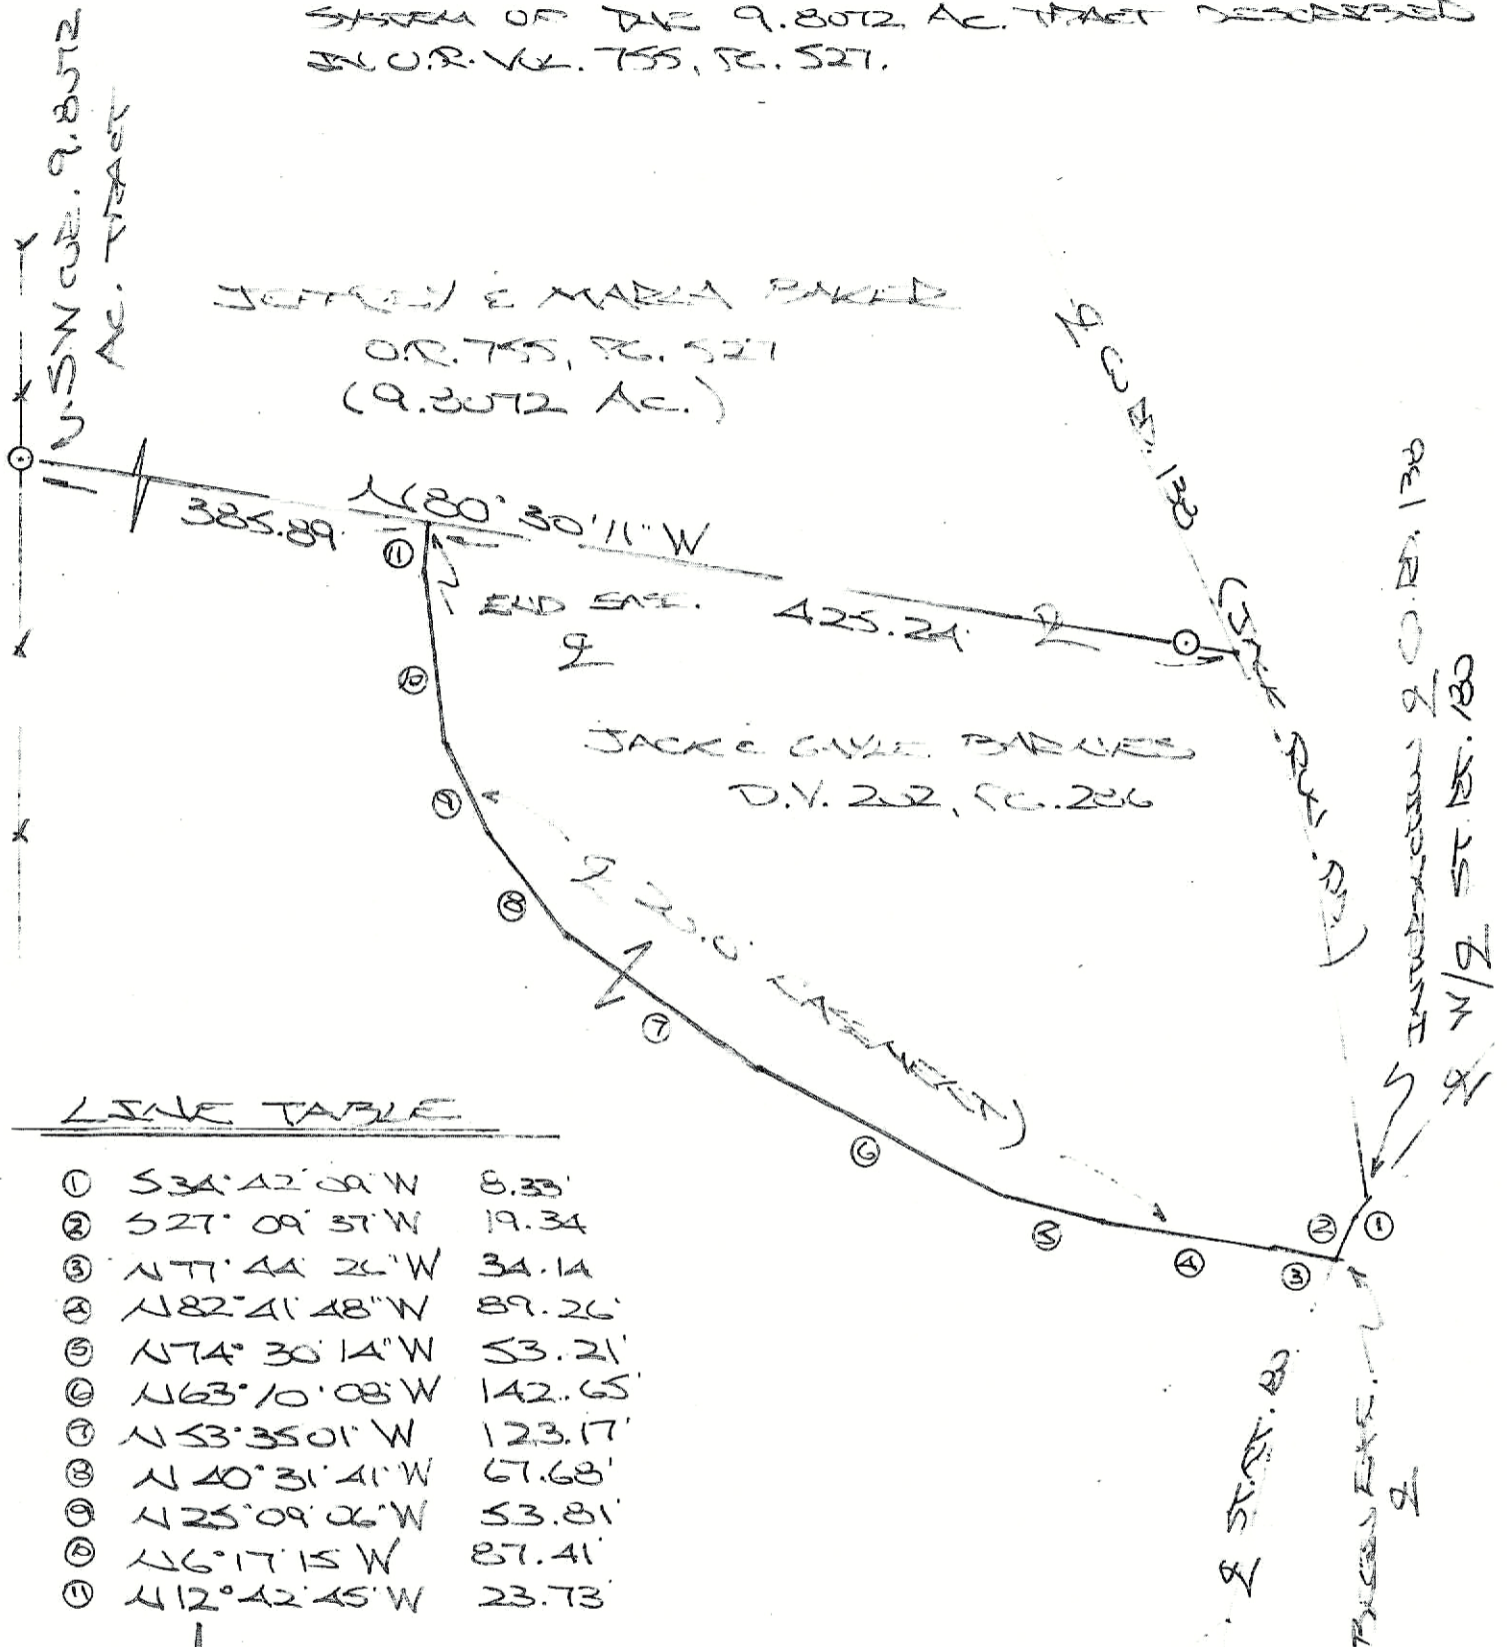 SYSTEM OF THE 9.8072 AC. TRACT DESCRIBED
IN O.R. VOL. 755, PG. 527.
SW COR. 9.8072
AC. TRACT
JEFFREY & MARLA BAKER
O.R. 755, PG. 527
(9.8072 AC.)
N80°30'11"W
385.89'
425.24'
END EASE.
℄
JACK & GAYLE BARNES
D.V. 202, PG. 286
℄ CO. RD. 138
℄ 20.0' EASEMENT
INTERSECTION ℄ CO. RD. 138
W/℄ ST. RT. 180
℄ ST. RT. 180
BEGIN EASE.
℄
LINE TABLE
① S34°42'09"W 8.33'
② S27°09'37"W 19.34
③ N77°44'26"W 34.14
④ N82°41'48"W 89.26'
⑤ N74°30'14"W 53.21'
⑥ N63°10'08"W 142.65'
⑦ N53°35'01"W 123.17'
⑧ N40°31'41"W 67.68'
⑨ N25°09'06"W 53.81'
⑩ N6°17'15"W 87.41'
⑪ N12°42'45"W 23.73'
⑪
⑩
⑨
⑧
⑦
⑥
⑤
④
③
②
①